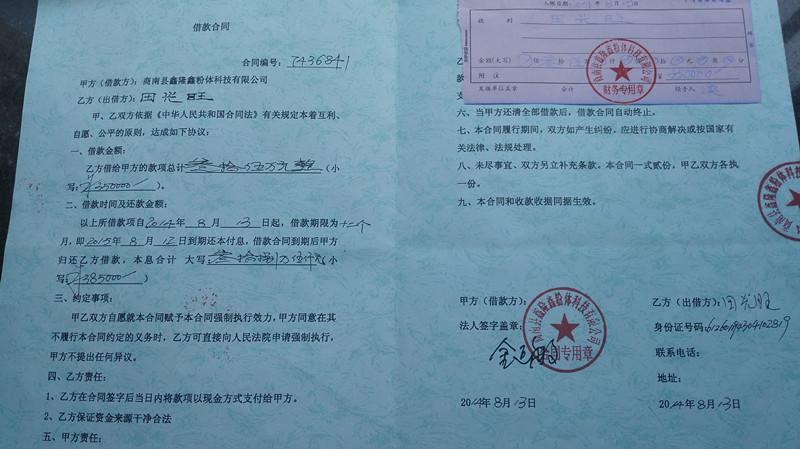 借款合同
合同编号：1436841
甲方（借款方）：商南县鑫隆鑫粉体科技有限公司
乙方（出借方）：田光旺
甲、乙双方依据《中华人民共和国合同法》有关规定本着互利、
自愿、公平的原则，达成如下协议：
一、借款金额：
乙方借给甲方的款项总计叁拾伍万元整（小
写：￥350000）。
二、借款时间及还款金额：
以上所借款项自2014年8月13日起，借款期限为十二个
月，即2015年8月12日到期还本付息，借款合同到期后甲方
归还乙方借款，本息合计 大写：叁拾捌万伍仟元（小
写：￥385000）
三、约定事项：
甲乙双方自愿就本合同赋予本合同强制执行效力，甲方同意在其
不履行本合同约定的义务时，乙方可直接向人民法院申请强制执行，
甲方不提出任何异议。
四、乙方责任：
1、乙方在合同签字后当日内将款项以现金方式支付给甲方。
2、乙方保证资金来源干净合法
五、甲方责任：
收到
金额(大写)
附注 350000
发据单位盖章 会计 经手人
财务专用章
六、当甲方还清全部借款后，借款合同自动终止。
七、本合同履行期间，双方如产生纠纷，应进行协商解决或按国家有
关法律、法规处理。
八、未尽事宜、双方另立补充条款。本合同一式贰份，甲乙双方各执
一份。
九、本合同和收款收据同据生效。
甲方（借款方）：
法人签字盖章：
商南县鑫隆鑫粉体科技有限公司
合同专用章
2014年8月13日
乙方（出借方）：田光旺
身份证号码：
联系电话：
地址：
2014年8月13日